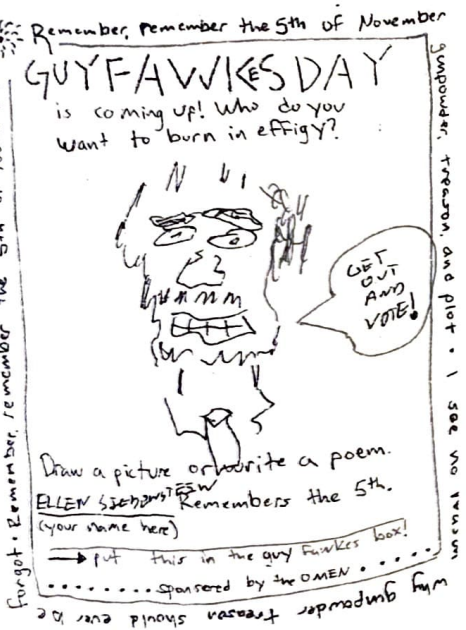 Remember, remember the 5th of November
gunpowder, treason, and plot. I see no reason
why gunpowder treason should ever be
forgot. Remember, remember the 5th of
GUY FAWKES DAY
is coming up! Who do you
want to burn in effigy?
GET
OUT
AND
VOTE!
Draw a picture or write a poem.
ELLEN Remembers the 5th.
(your name here)
put this in the guy Fawkes box!
sponsered by the OMEN